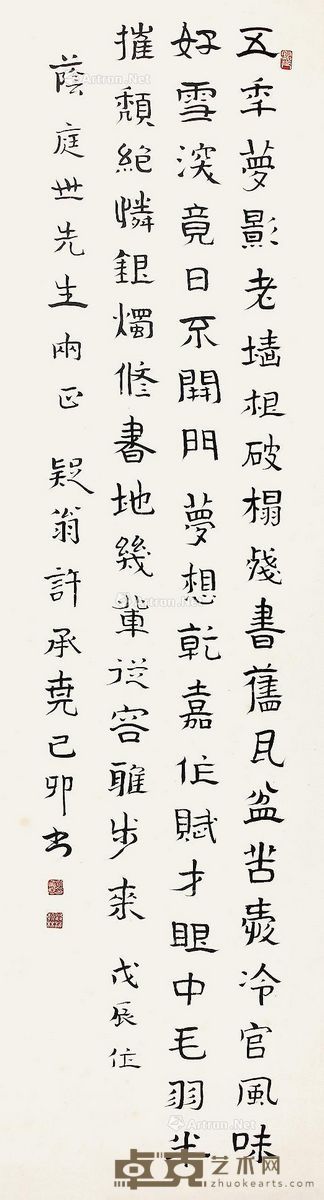 五秊夢影老墻根破榻殘書舊瓦盆苦愛冷官風味
好雪深竟日不開門夢想乾嘉作賦才眼中毛羽半
摧頹絕憐銀燭修書地幾輩從容雅步來 戊辰作
蔭庭世先生兩正 疑翁許承堯己卯書
Artron.Net
卓克艺术网
www.zhuokearts.com